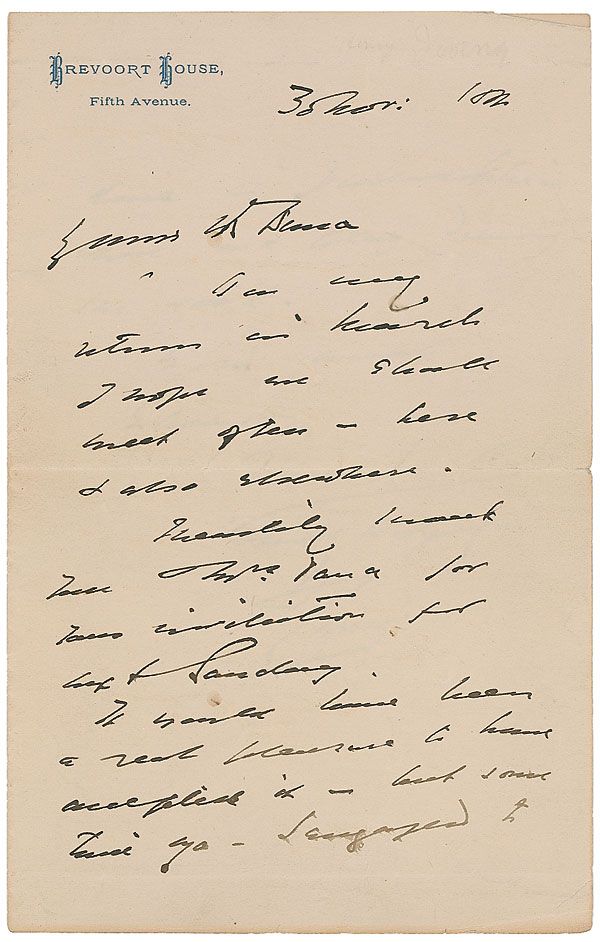 BREVOORT HOUSE,
Fifth Avenue.
30 Nov:
Dana
On my
return in March
I hope we shall
meet often – here
& also elsewhere.
Meantime I
you & Mrs. Dana for
your invitation for
next Sunday.
It would have been
a real pleasure to have
accepted it – but some
time ago – I engaged to